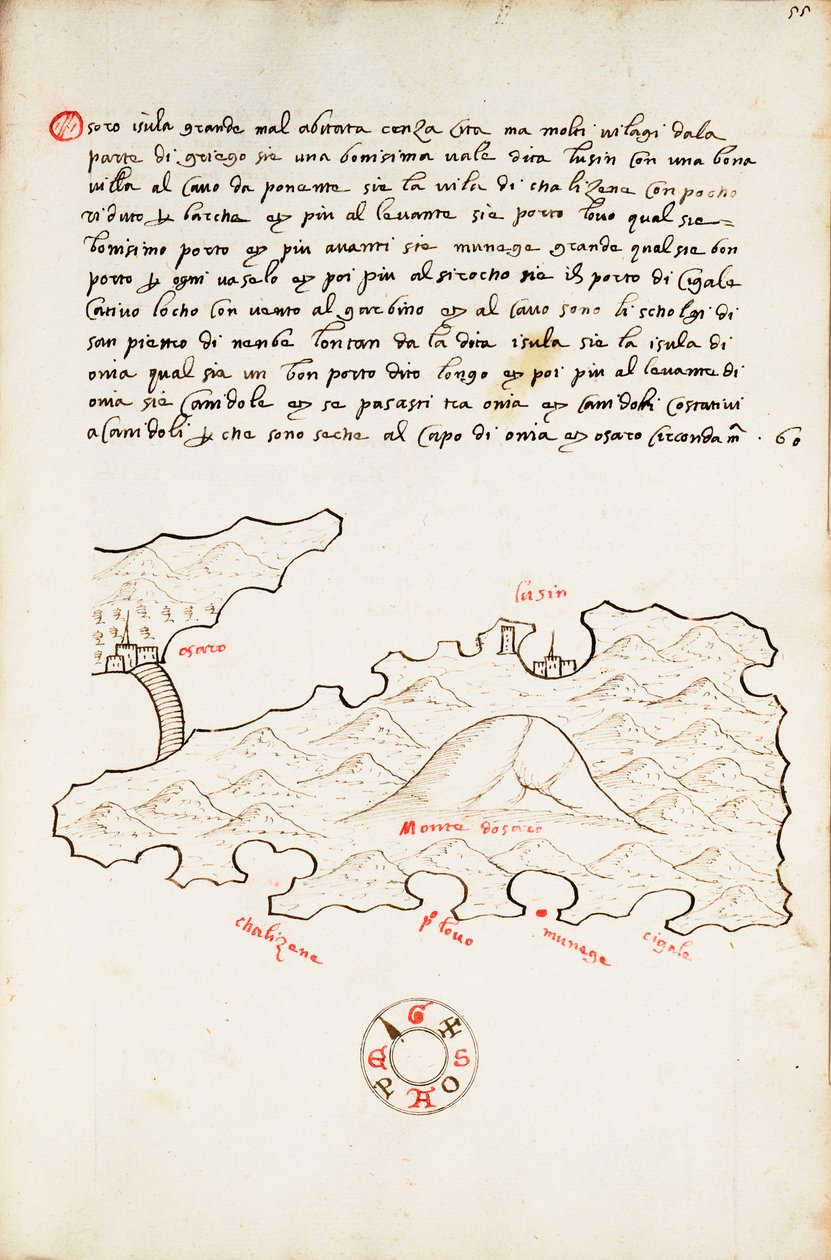 55
Osoro isula grande mal abitata cenza cita ma molti vilagi dala
parte di griego sie una bonisima vale dita lusin con una bona
villa al cavo da ponente sie la vila di chalizene con pocho
riduto ꝑ barche et piu al levante sie porto lovo qual sie
bonisimo porto et piu avanti sie munege grande qual sie bon
porto ꝑ ogni vaselo et poi piu al sirocho sie il porto di cigale
cativo locho con vento al garbino et al cavo sono li scholgi di
san pietro di nenbe lontan da la dita isula sie la isula di
onia qual sie un bon porto dito longo et poi piu al levante di
onia sie canidole et se pasasti tra onia et canidoli costativi
a canidoli ꝑ che sono seche al capo di onia et osaro circonda m̃ . 60
lusin
osaro
Monte dosaro
chalizene
pº lovo
munege
cigale
G
S
O
A
P
E